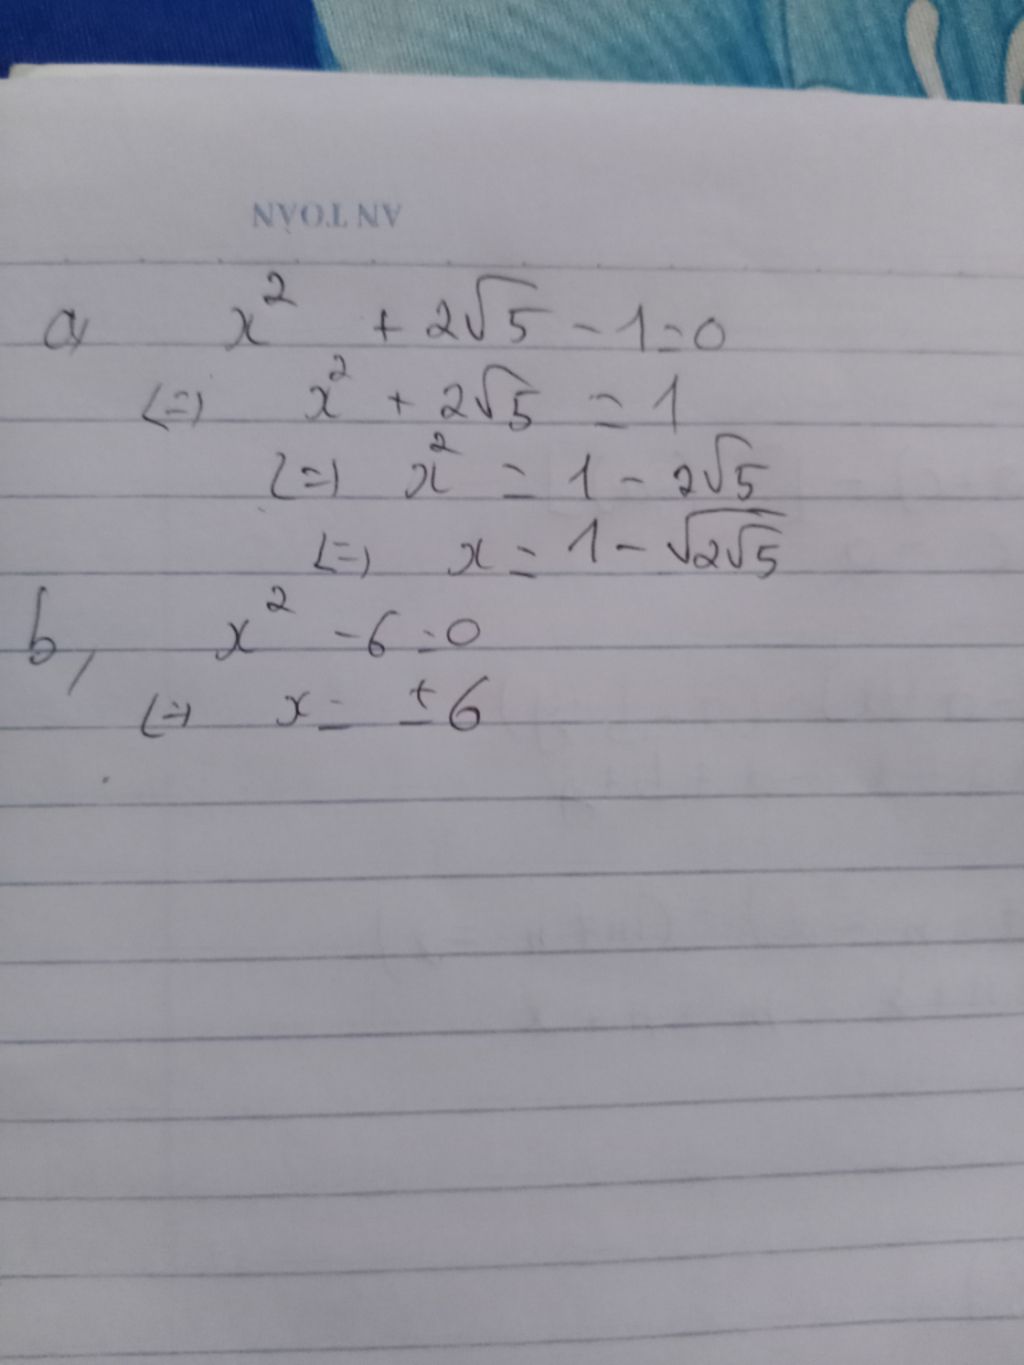 AN TOÀN
a, x² + 2√5 - 1 = 0
<=> x² + 2√5 = 1
<=> x² = 1 - 2√5
<=> x = 1 - √(2√5)
b, x² - 6 = 0
<=> x = ±6